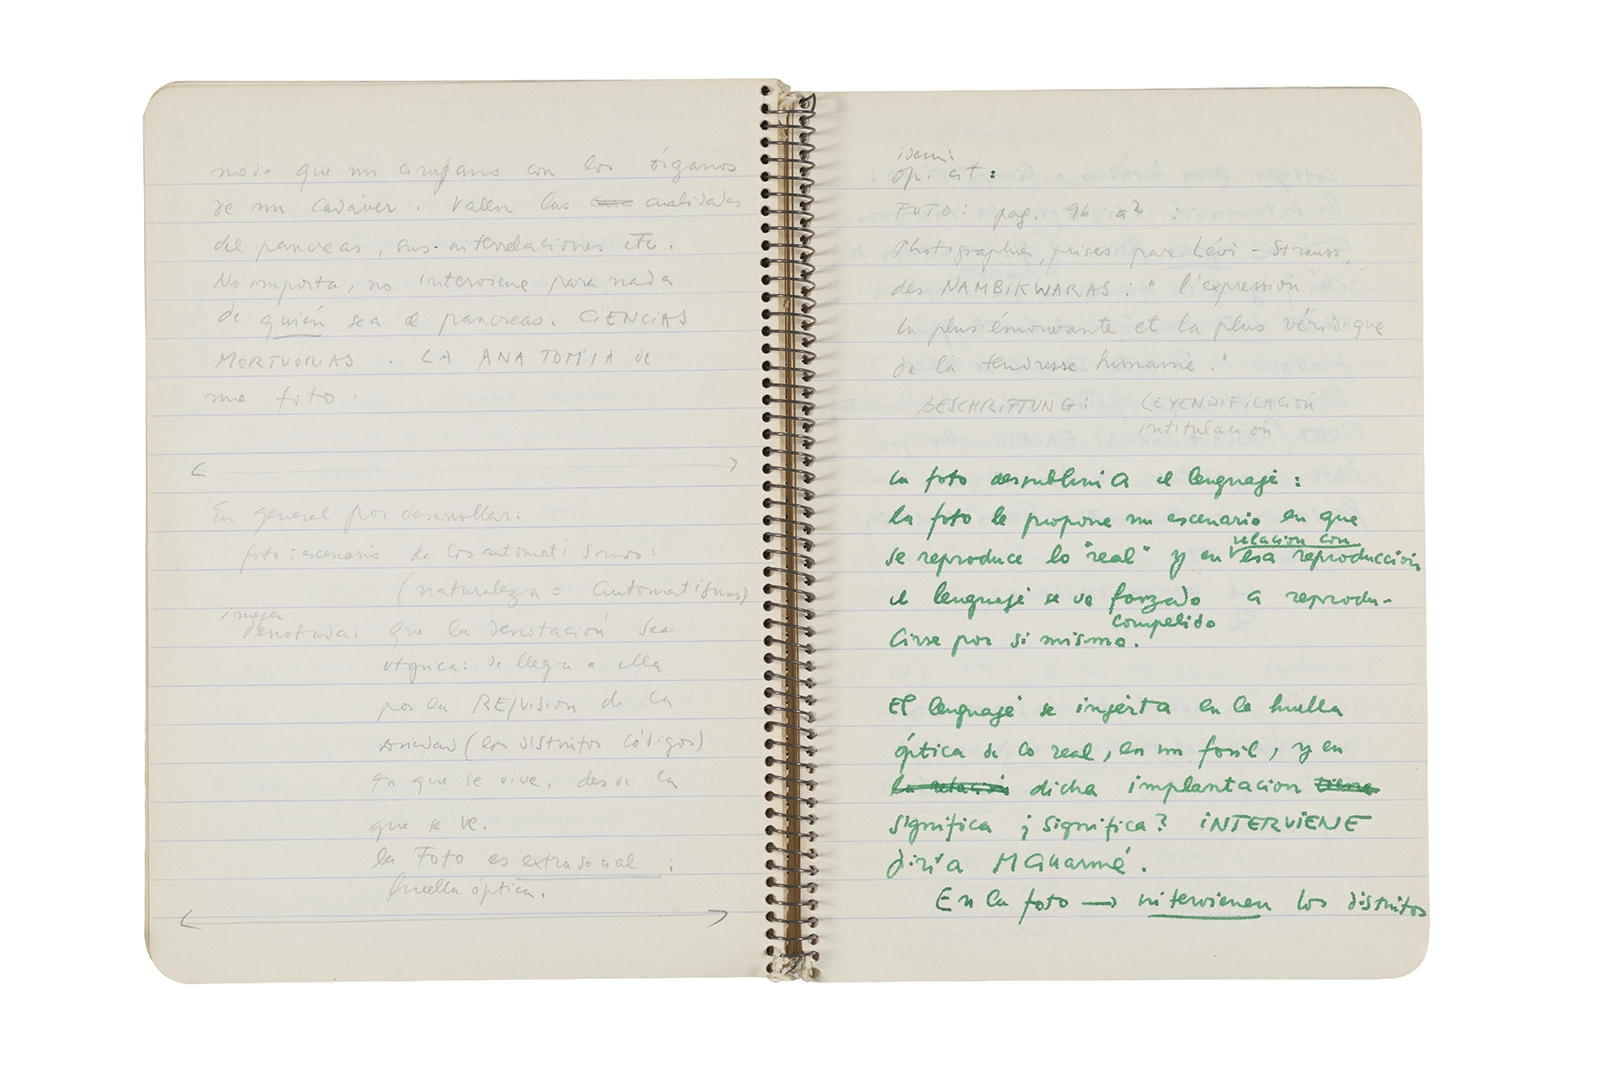 modo que un cirujano con los órganos
de un cadáver. Valen las cualidades
del pancreas, sus interrelaciones etc.
No importa, no interviene para nada
de quién sea el pancreas. CIENCIAS
MORTUORIAS. LA ANATOMIA de
una foto.
En general por desarrollar:
foto: escenario de los automatismos:
(naturaleza = automatismos)
imagen
denotada: que la denotación sea
utópica: se llega a ella
por la RE/VISION de la
sociedad (los distintos códigos)
en que se vive, desde la
que se ve.
la Foto es extrasocial:
huella óptica.
idem:
op. cit:
FOTO: pag. 96 a2
Photographies, prises par Lévi-Strauss,
des NAMBIKWARAS: "l'expression
la plus émouvante et la plus véridique
de la tendresse humaine."
BESCHRIFTUNG: LEYENDIFICACIÓN
intitulación
la foto desublimiA el lenguaje:
la foto le propone un escenario en que
relacion con
se reproduce lo "real" y en esa reproducción
el lenguaje se ve forzado a reprodu-
compelido
cirse por si mismo.
El lenguaje se injerta en la huella
óptica de lo real, en un fosil, y en
la relación dicha implantacion tiene
significa ¿significa? INTERVIENE
diría Mallarmé.
En la foto → intervienen los distintos